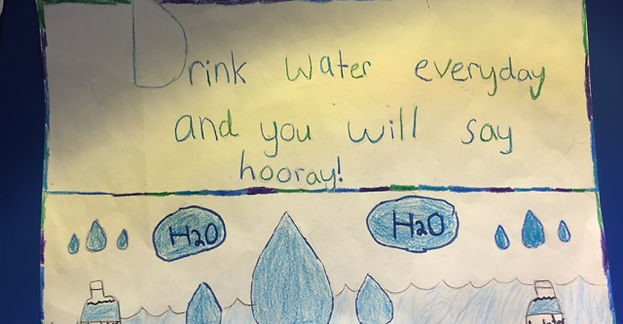 Drink water everyday
and you will say
hooray!
H2O
H2O